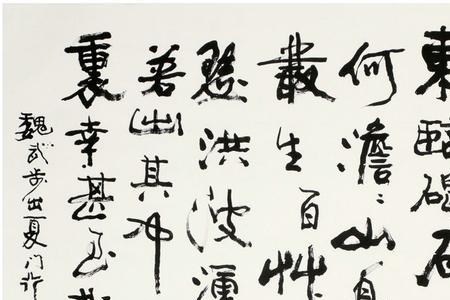 東臨碣石
何澹〻山島
叢生百艸
瑟洪波湧
若出其中
裏幸甚至哉
魏武步出夏門行